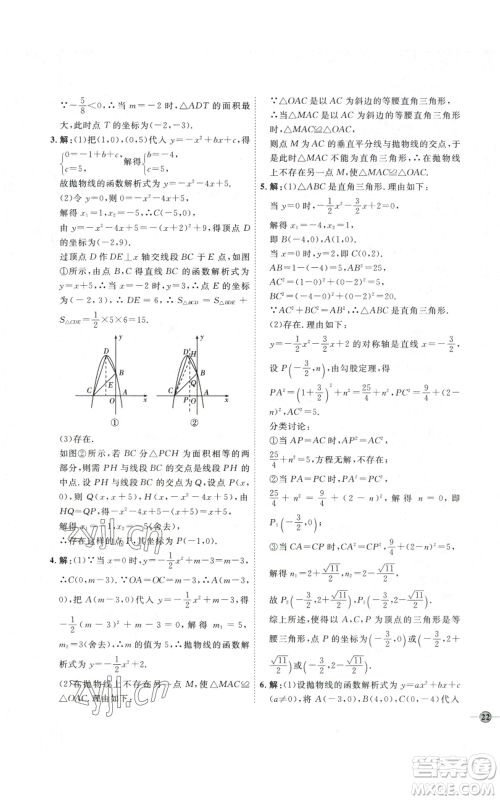 ∵-5/8<0,∴当 m=-2时,△ADT 的面积最
大,此时点 T 的坐标为(-2,-3).
3.解:(1)把(1,0),(0,5)代入 y=-x²+bx+c,得
{0=-1+b+c, c=5, 解得{b=-4, c=5.
故抛物线的函数解析式为 y=-x²-4x+5.
(2)令 y=0,得-x²-4x+5=0.
解得 x₁=1,x₂=-5.∴C(-5,0).
∵y=-x²-4x+5=-(x+2)²+9,得顶点 D
的坐标为(-2,9).
过顶点 D 作 DE⊥x 轴交线段 BC 于E点,如图
①所示,易得直线 BC 的解析式为 y=x+5,
∴当 x=-2时,y=3.∴DE=6,∴S△BCD=S△BDE+
S△CDE=1/2×5×6=15.
D
E
B
C
O
A
x
y
①
D
H
Q
B
C
P
O
A
x
y
②
(3)存在.
如图②所示,若 BC 分△PCH 为面积相等的两
部分,则 PH 与线段 BC 的交点 Q 是线段 PH 的
中点.设 PH 与线段 BC 的交点为 Q,设 P(x,0),
则 Q(x,x+5),H(x,-x²-4x+5).
HQ=PQ,∴-x²-4x+5=2(x+5).
解得 x₁=-1,x₂=-5(舍去).
∴存在这样的点 P,其坐标为 P(-1,0).
4.解:(1)∵当 x=0时,y=-1/2x²-x-m+3=-m+3,
∴C(0,m-3).∵OA=OC=m-3,
∴A(m-3,0).把 A(m-3,0)代入抛物线中,得
-1/2(m-3)²-(m-3)+m-3=0.解得 m₁=5,
m₂=3(舍去),∴m=5,∴抛物线的函数解析
式为 y=-1/2x²+x+4.
(2)在抛物线上不存在另一点 M,使△MAC≌
△OAC.理由如下:
∵△OAC 是以 AC 为斜边的等腰直角三角形,
∴当△MAC≌△OAC 时,
△MAC 也是以 AC 为斜边的等腰直角三角形,
则点 M 为 AC 的垂直平分线与抛物线的交点,此
时△MAC 不可能为直角三角形.∴在抛物线上
不存在另一点 M,使△MAC≌△OAC.
5.解:(1)△ABC 是直角三角形.理由如下:
当 y=0时,-1/2x²-3/2x+2=0.
解得 x₁=-4,x₂=1.
即 B(-4,0),A(1,0).
当 x=0时,y=2,即 C(0,2).
AB=1-(-4)=5,AB²=25.
AC²=(1-0)²+(0-2)²=5.
BC²=(-4-0)²+(0-2)²=20.
∵AC²+BC²=AB²,∴△ABC 是直角三角形.
(2)存在.理由如下:
y=-1/2x²-3/2x+2 的对称轴是直线 x=-3/2,
设 P(-3/2,n),由勾股定理,得
PA²=(1+3/2)²+n²=25/4+n²,PC²=9/4+(2-
n)²,AC²=5.
分类讨论:
①当 AC=AP 时,AP²=AC²,
25/4+n²=5,方程无解,不成立.
②当 AP=CP 时,AP²=CP²,
25/4+n²=9/4+(2-n)²,解得 n=0,即
P₁(-3/2,0).
③当 AC=CP 时,AC²=CP²,9/4+(2-n)²=5,
解得 n₁=2+√11/2,n₂=2-√11/2,
故 P₂(-3/2,2+√11/2),P₃(-3/2,2-√11/2).
综上所述,使得以 A,C,P 为顶点的三角形是等
腰三角形,点 P 的坐标为(-3/2,0)或(-3/2,2+
√11/2)或(-3/2,2-√11/2).
6.解:(1)设抛物线的函数解析式为 y=ax²+bx+c
(a≠0),
22
zyjl.cn
zyjl.cn